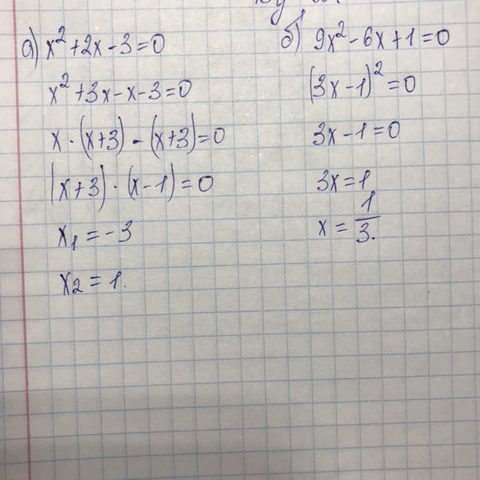 а) x² + 2x - 3 = 0
x² + 3x - x - 3 = 0
x · (x + 3) - (x + 3) = 0
(x + 3) · (x - 1) = 0
x₁ = -3
x₂ = 1.
б) 9x² - 6x + 1 = 0
(3x - 1)² = 0
3x - 1 = 0
3x = 1
x = 1/3.